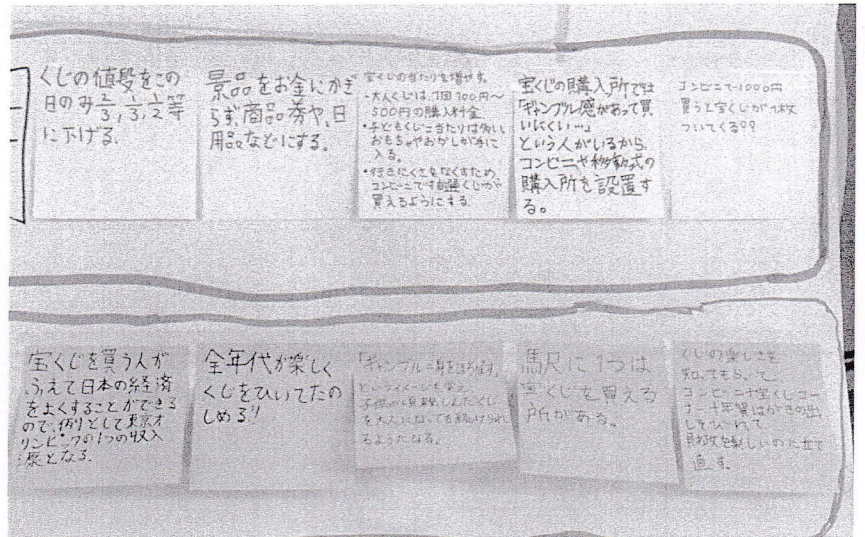 くじの値段をこの
日のみ2/3,1/3,1/2等
に下げる.
景品をお金にかぎ
らず,商品券や、日
用品などにする。
宝くじの当たりを増やす。
・大人くじは、1回100円〜
500円の購入料金
・子どもくじは当たりは
おもちゃやおかしが
入る。
・行きにくさをなくすため、
コンビニです
買えるようにする
宝くじの購入所では
「ギャンブル感があって買
いにくい…」
という人がいるから、
コンビニや移動式の
購入所を設置す
る。
コンビニで1000円
買うと宝くじが1枚
ついてくる??
宝くじを買う人が
ふえて日本の経済
をよくすることができる
ので、例として東京オ
リンピックの1つの収入
源となる.
全年代が楽しく
くじをひいてたの
しめる!!
「ギャンブル=身をほろぼす」
というイメージを
子供の くじ
を大人になっても続けられ
るようになる。
駅に1つは
宝くじを買える
所がある。
くじの楽しさを
知ってもらって
コンビニ+宝くじコー
ナー+年賀はがきの出
して
財政を楽しいのに立て
直す。